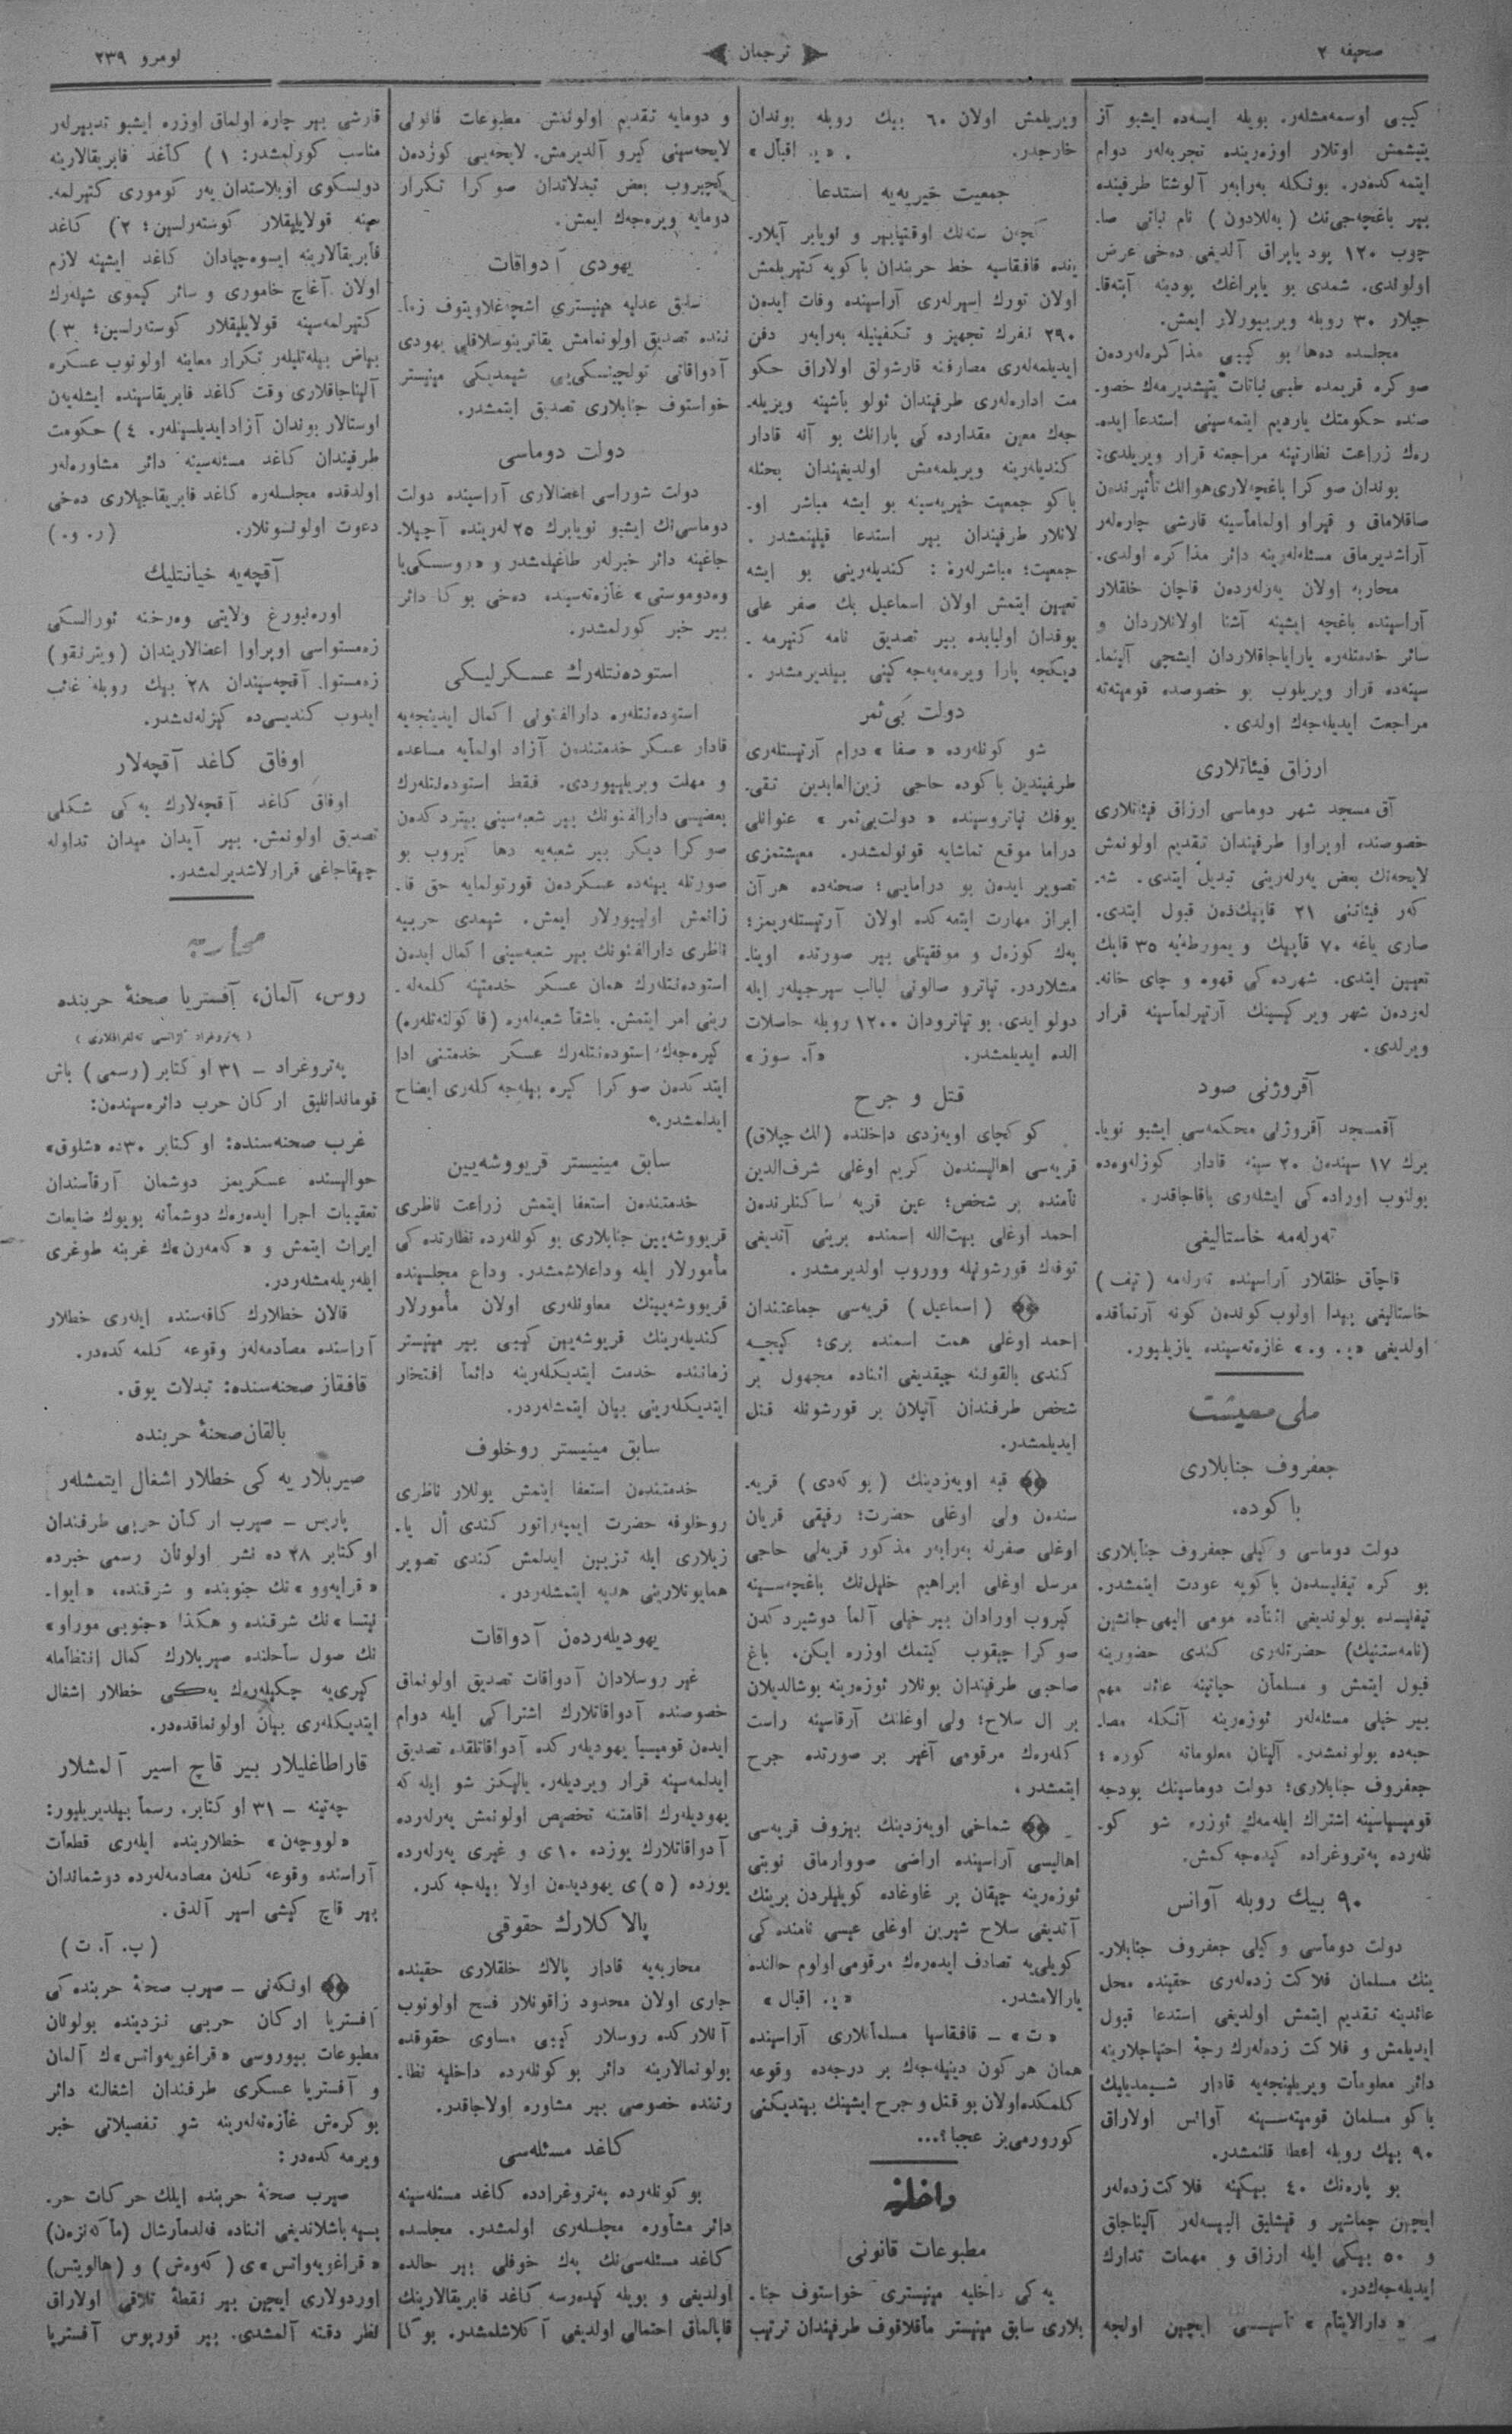 صحیفه ٢
ترجمان
نومرو ٢٣٩
کیبی اوسمه‌مشلەر. بویله ایسه‌ده ایشبو آز
یتیشمش اوتلار اوزەرینده تجربه‌لەر دوام
ایتمه‌کده‌در. بونکله بەرابەر آلوشتا طرفینده
بیر باغچه‌جی‌نك (به‌للادون) نام نباتی صا-
چوب ١٢٠ پود یاپراق آلدیغی ده‌خی عرض
اولوندی. شمدی بو یاپراغك پودینه آپته‌قا-
جیلار ٣٠ روبله ویرییورلار ایمش.
مجلسده ده‌ها بو کیبی مذاکره‌لەردەن
صوکره قریمده طبی نباتات یتیشدیرمەك خصو-
صنده حکومتك یاردیم ایتمه‌سینی استدعا ایده-
رەك زراعت نظارتینه مراجعته قرار ویریلدی:
بوندان صوکرا باغچه‌لاری هوانك تأثیرندەن
صاقلاماق و قیراو اولماماسینه قارشی چاره‌لەر
آراشدیرماق مسئله‌لەرینه دائر مذاکره اولدی.
محاربه اولان یەرلەردەن قاچان خلقلار
آراسینده باغچه ایشینه آشنا اولانلاردان و
سائر خدمتلەره یارایاجاقلاردان ایشجی آلینما-
سینه‌ده قرار ویریلوب بو خصوصده قومیته‌ته
مراجعت ایدیله‌جەك اولدی.
ارزاق فیئاتلاری
آق مسجد شهر دوماسی ارزاق فیئاتلاری
خصوصنده اوپراوا طرفیندان تقدیم اولونمش
لایحه‌نك بعض یەرلەرینی تبدیل ایتدی. شه-
کەر فیئاتنی ٢١ قاپیك‌دەن قبول ایتدی.
صاری یاغه ٧٠ قاپیك و یمورطه‌یه ٣٥ قاپك
تعیین ایتدی. شهرده‌کی قهوه و چای خانه-
لەردەن شهر ویرکیسینك آرتیرلماسینه قرار
ویرلدی.
آقروژنی صود
آقمسجد آقروژنی محکمه‌سی ایشبو نویا-
برك ١٧ سیندەن ٢٠ سینه قادار کوزله‌وەده
بولنوب اوراده‌کی ایشلەری باقاجاقدر.
تەرلەمه خاستالیغی
قاچاق خلقلار آراسینده تەرلەمه (تیف)
خاستالیغی پیدا اولوب کوندەن کونه آرتماقده
اولدیغی «ی. و.» غازەته‌سینده یازیلیور.
ملی معیشت
جعفروف جنابلاری
باکوده.
دولت دوماسی وکیلی جعفروف جنابلاری
بو کره تیفلیسدەن باکویه عودت ایتمشدر.
تیفلیسده بولوندیغی اثناده مومی الیهی جانشین
(نامه‌ستنیك) حضرتلەری کندی حضورینه
قبول ایتمش و مسلمان حیاتینه عائد مهم
بیر خیلی مسئله‌لەر ئوزەرینه آنکله مصا-
حبه‌ده بولونمشدر. آلینان معلوماته کوره؛
جعفروف جنابلاری؛ دولت دوماسینك بودجه
قومیسیاسینه اشتراك ایلەمەك ئوزره شو کو-
نلەرده پەتروغراده کیده‌جه‌کمش.
٩٠ بیك روبله آوانس
دولت دوماسی وکیلی جعفروف جنابلار-
ینك مسلمان فلاکت زده‌لەری حقینده محل
عائدینه تقدیم ایتمش اولدیغی استدعا قبول
ایدیلمش و فلاکت زده‌لەرك رجهٔ احتیاجلارینه
دائر معلومات ویریلینجه‌یه قادار شیمدیلیك
باکو مسلمان قومیته‌سینه آوانس اولاراق
٩٠ بیك روبله اعطا قلنمشدر.
بو پاره‌نك ٤٠ بیکینه فلاکت زده‌لەر
ایچین چماشیر و قیشلیق البیسه‌لەر آلیناجاق
و ٥٠ بیکی ایله ارزاق و مهمات تدارك
ایدیله‌جەك‌در.
«دارالایتام» تأسیسی ایچین اولجه
ویریلمش اولان ٦٠ بیك روبله بوندان
خارجدر. «ی. اقبال»
جمعیت خیریه‌یه استدعا
کچەن سنه‌نك اوقتیابیر و نویابر آیلار-
ینده قافقاسیه خط حربندان باکویه کتیریلمش
اولان تورك اسیرلەری آراسینده وفات ایدەن
٢٩٠ نفرك تجهیز و تکفینیله بەرابەر دفن
ایدیلمه‌لەری مصارفنه قارشولق اولاراق حکو
مت اداره‌لەری طرفیندان ئولو باشینه ویریله-
جەك معین مقدارده‌کی پارانك بو آنه قادار
کندیلەرینه ویریلمەمش اولدیغیندان بحثله
باکو جمعیت خیریه‌سینه بو ایشه مباشر او-
لانلار طرفیندان بیر استدعا قیلینمشدر.
جمعیت؛ مباشرلەره: کندیلەرینی بو ایشه
تعیین ایتمش اولان اسماعیل بك صفر علی
یوفدان اولبابده بیر تصدیق نامه کتیرمه-
دیکجه پارا ویرەمەیه‌جه‌کینی بیلدیرمشدر.
دولت بی‌ثمر
شو کونلەرده «صفا» درام آرتیستلەری
طرفیندین باکوده حاجی زین‌العابدین تقی-
یوفك تیاتروسینده «دولت بی‌ثمر» عنوانلی
دراما موقع تماشایه قونولمشدر. معیشتمزی
تصویر ایدەن بو درامایی؛ صحنه‌ده هر آن
ابراز مهارت ایتمه‌کده اولان آرتیستلەریمز؛
پەك کوزەل و موفقیتلی بیر صورتده اوینا-
مشلاردر. تیاترو صالونی لبالب سیرجیلەر ایله
دولو ایدی. بو تیاترودان ١٢٠٠ روبله حاصلات
الده ایدیلمشدر. «آ. سوز»
قتل و جرح
کوکچای اویەزدی داخلنده (لك چپلاق)
قریه‌سی اهالیسندەن کریم اوغلی شرف‌الدین
نامنده بر شخص؛ عین قریه ساکنلرندەن
احمد اوغلی بیت‌الله اسمنده برینی آتدیغی
توفەك قورشونیله ووروب اولدیرمشدر.
(اسماعیل) قریه‌سی جماعتندان
احمد اوغلی همت اسمنده بری؛ کیجه
کندی بالقونه چیقدیغی اثناده مجهول بر
شخص طرفندان آتیلان بر قورشونله قتل
ایدیلمشدر.
قبه اویەزدینك (بوکەدی) قریه-
سندەن ولی اوغلی حضرت؛ رفیقی قربان
اوغلی صفرله بەرابەر مذکور قریه‌لی حاجی
مرسل اوغلی ابراهیم خلیل‌نك باغچه‌سینه
کیروب اورادان بیر خیلی آلما دوشیردکدن
صوکرا چیقوب کیتمك اوزره ایکن، باغ
صاحبی طرفیندان بونلار ئوزەرینه بوشالدیلان
بر ال سلاح؛ ولی اوغلنك آرقاسینه راست
کله‌رەك مرقومی آغیر بر صورتده جرح
ایتمشدر.
شماخی اویەزدینك بیزوف قریه‌سی
اهالیسی آراسینده اراضی صووارماق نوبتی
ئوزەرینه چیقان بر غاوغاده کویلیلردن برینك
آتدیغی سلاح شیرین اوغلی عیسی نامنده‌کی
کویلی‌یه تصادف ایدەرەك مرقومی اولوم حالنده
یارالامشدر. «ی. اقبال»
«ت» – قافقاسیا مسلمانلاری آراسینده
همان هر کون دینیله‌جەك بر درجه‌ده وقوعه
کلمکده اولان بو قتل و جرح ایشینك بیتدیکنی
کورورمی‌یز عجبا؟...
داخلیه
مطبوعات قانونی
یه‌کی داخلیه مینیستری خواستوف جنا-
بلاری سابق مینیستر ماقلاقوف طرفیندان ترتیب
و دومایه تقدیم اولونمش مطبوعات قانونی
لایحه‌سینی کیرو آلدیرمش. لایحه‌یی کوزدەن
کچیروب بعض تبدلاتدان صوکرا تکرار
دومایه ویره‌جەك ایمش.
یهودی آدواقات
سابق عدلیه مینیستری اشچه‌غلاویتوف زما-
ننده تصدیق اولونمامش یقاترینوسلافلی یهودی
آدواقاتی تولچینسکی‌یی شیمدیکی مینیستر
خواستوف جنابلاری تصدیق ایتمشدر.
دولت دوماسی
دولت شوراسی اعضالاری آراسینده دولت
دوماسی‌نك ایشبو نویابرك ٢٥ لەرینده آچیلا-
جاغینه دائر خبرلەر طاغیلمشدر و «روسسکی‌یا
وەدوموستی» غازەته‌سینده ده‌خی بوکا دائر
بیر خبر کورلمشدر.
استودەنتلەرك عسکرلیکی
استودەنتلەره دارالفنونی اکمال ایدینجه‌یه
قادار عسکر خدمتندەن آزاد اولمایه مساعده
و مهلت ویریلییوردی. فقط استودەنتلەرك
بعضیسی دارالفنونك بیر شعبه‌سینی بیتردکدەن
صوکرا دیکر بیر شعبه‌یه دها کیروب بو
صورتله یینه‌ده عسکردەن قورتولمایه حق قا-
زانمش اولییورلار ایمش. شیمدی حربیه
ناظری دارالفنونك بیر شعبه‌سینی اکمال ایدەن
استودەنتلەرك همان عسکر خدمتینه کلمه‌له-
رینی امر ایتمش. باشقا شعبه‌لەره (فاکولته‌تلەره)
کیره‌جەك استودەنتلەرك عسکر خدمتنی ادا
ایتدکدەن صوکرا کیره بیله‌جه‌کلەری ایضاح
ایدلمشدر.
سابق مینیستر قریووشه‌یین
خدمتندەن استعفا ایتمش زراعت ناظری
قریووشه‌یین جنابلاری بو کونلەرده نظارتده‌کی
مأمورلار ایله وداعلاشمشدر. وداع مجلسینده
قریووشه‌یینك معاونلەری اولان مأمورلار
کندیلەرینك قریوشه‌یین کیبی بیر مینیستر
زماننده خدمت ایتدیکلەرینه دائما افتخار
ایتدیکلەرینی بیان ایتمشلەردر.
سابق مینیستر روخلوف
خدمتندەن استعفا ایتمش یوللار ناظری
روخلوفه حضرت ایمپەراتور کندی ال یا-
زیلاری ایله تزیین ایدلمش کندی تصویر
همایونلارینی هدیه ایتمشلەردر.
یهودیلەردەن آدواقات
غیر روسلادان آدواقات تصدیق اولونماق
خصوصنده آدواقاتلارك اشتراکی ایله دوام
ایدەن قومیسیا یهودیلەرکده آدواقاتلقده تصدیق
ایدلمه‌سینه قرار ویردیلەر. یالیکز شو ایله که
یهودیلەرك اقامتنه تخصیص اولونمش یەرلەرده
آدواقاتلارك یوزده ١٠ی و غیری یەرلەرده
یوزده (٥)ی یهودیدەن اولا بیله‌جه‌کدر.
پالاکلارك حقوقی
محاربه‌یه قادار پالاك خلقلاری حقینده
جاری اولان محدود زاقونلار فسخ اولونوب
آنلارکده روسلار کیبی مساوی حقوقده
بولونمالارینه دائر بو کونلەرده داخلیه نظا-
رتنده خصوصی بیر مشاوره اولاجاقدر.
کاغد مسئله‌سی
بو کونلەرده پەتروغرادده کاغد مسئله‌سینه
دائر مشاوره مجلسلەری اولمشدر. مجلسده
کاغد مسئله‌سی‌نك پەك خوفلی بیر حالده
اولدیغی و بویله کیدەرسه کاغد فابریقالارینك
قاپالماق احتمالی اولدیغی آکلاشلمشدر. بوکا
قارشی بیر چاره اولماق اوزره ایشبو تدبیرلەر
مناسب کورلمشدر: ١) کاغد فابریقالارینه
دونسکوی اوبلاستدان یەر کوموری کتیرلمه-
سینه قولایلیقلار کوستەرلسین؛ ٢) کاغد
فابریقالارینه ایسوەچیادان کاغد ایشینه لازم
اولان آغاج خاموری و سائر کیموی شیلەرك
کتیرلمه‌سینه قولایلیقلار کوستەرلسین؛ ٣)
بیاض بیله‌تلیلەر تکرار معاینه اولونوب عسکره
آلیناجاقلاری وقت کاغد فابریقاسینده ایشلەیەن
اوستالار بوندان آزاد ایدیلسینلەر. ٤) حکومت
طرفیندان کاغد مسئله‌سینه دائر مشاوره‌لەر
اولدقده مجلسلەره کاغد فابریقاجیلاری ده‌خی
دعوت اولونسونلار. (ر. و.)
آقچه‌یه خیانتلیك
اورەنبورغ ولایتی وەرخنه ئورالسکی
زەمستواسی اوپراوا اعضالاریندان (ویترنقو)
زەمستوا آقچه‌سیندان ٢٨ بیك روبله غائب
ایدوب کندیسی‌ده کیزله‌نمشدر.
اوفاق کاغد آقچه‌لار
اوفاق کاغد آقچه‌لارك یه‌کی شکلی
تصدیق اولونمش. بیر آیدان میدان تداوله
چیقاجاغی قرارلاشدیرلمشدر.
محاربه
روس، آلمان، آفستریا صحنهٔ حربنده
(پەتروغراد آژانسی تەلغرافلاری)
پەتروغراد – ٣١ اوکتابر (رسمی) باش
قوماندانلیق ارکان حرب دائره‌سیندەن:
غرب صحنه‌سنده: اوکتابر ٣٠نه «شلوق»
حوالیسنده عسکریمز دوشمان آرقاسندان
تعقیبات اجرا ایدەرەك دوشمانه بویوك ضایعات
ایراث ایتمش و «کەمەرن»ك غربنه طوغری
ایلەریله‌مشلەردر.
قالان خطلارك کافه‌سنده ایلەری خطلار
آراسنده مصادمه‌لەر وقوعه کلمه‌کده‌در.
قافقاز صحنه‌سنده: تبدلات یوق.
بالقان صحنهٔ حربنده
صیربلار یه‌کی خطلار اشغال ایتمشلەر
پاریس – صیرب ارکان حربی طرفندان
اوکتابر ٢٨ ده نشر اولونان رسمی خبرده
«قرایه‌وو»نك جنوبنده و شرقنده، «ایوا-
نیتسا»نك شرقنده و هکذا «جنوبی موراو»
نك صول ساحلنده صیربلارك کمال انتظامله
کیری‌یه چکیله‌رەك یه‌کی خطلار اشغال
ایتدیکلەری بیان اولونماقده‌در.
قاراطاغلیلار بیر قاچ اسیر آلمشلار
چەتینه – ٣١ اوکتابر. رسماً بیلدیریلیور:
«لووچەن» خطلارینده ایلەری قطعات
آراسنده وقوعه کلەن مصادمه‌لەرده دوشماندان
بیر قاچ کیشی اسیر آلدق.
(پ. آ. ت)
اونکەنی – صیرب صحنهٔ حربنده‌کی
آفستریا ارکان حربی نزدینده بولونان
مطبوعات بیوروسی «قراغویه‌واتس»ك آلمان
و آفستریا عسکری طرفندان اشغالنه دائر
بو کرەش غازەته‌لەرینه شو تفصیلاتی خبر
ویرمه‌کده‌در:
صیرب صحنهٔ حربنده ایلك حرکات حر-
بییه باشلاندیغی اثناده فەلدمارشال (ماکەنزەن)
«قراغویه‌واتس»ی (کەوەش) و (هالویتس)
اوردولاری ایچین بیر نقطهٔ تلاقی اولاراق
نظر دقته آلمشدی. بیر قورپوس آفستریا